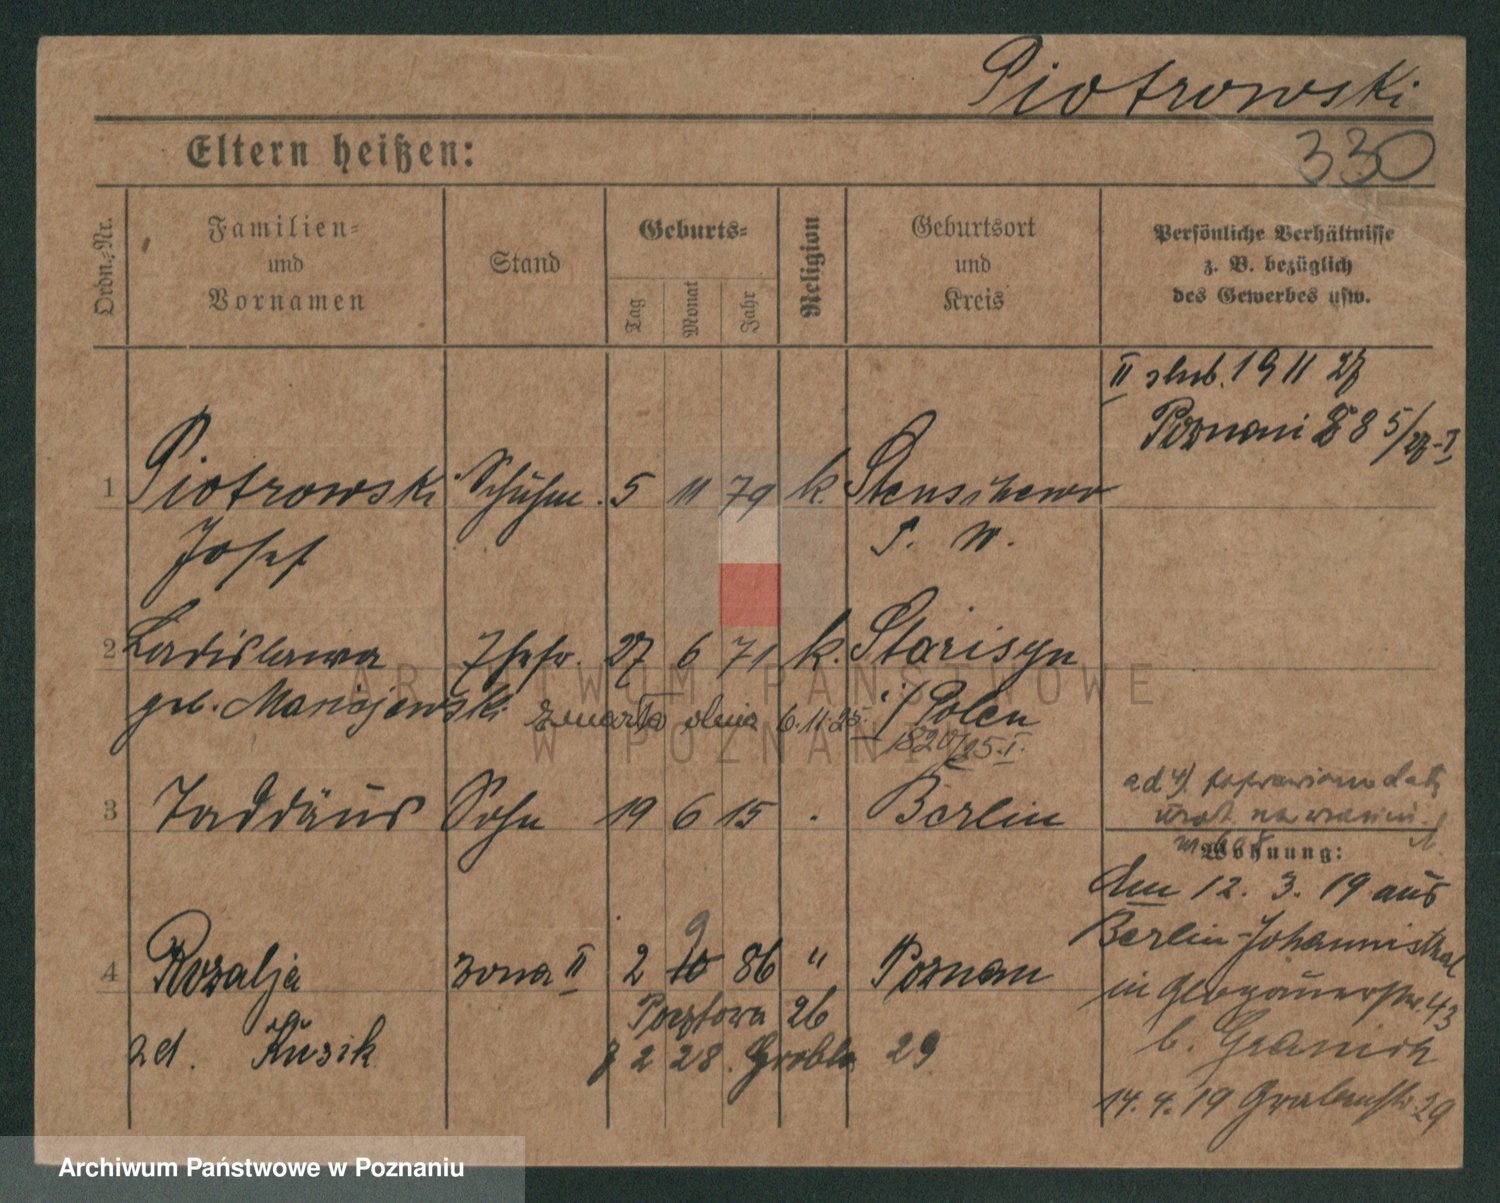 Piotrowski
330
Eltern heißen:
Ordn.-Nr.
Familien-
und
Vornamen
Stand
Geburts-
Tag
Monat
Jahr
Religion
Geburtsort
und
Kreis
Persönliche Verhältnisse
z. B. bezüglich
des Gewerbes usw.
II slub. 19 11 27
Poznań 88 5/27-I
1 Piotrowski Schuhm. 5 11 79 k. Stenschewo
Josef P. W.
2 Ladislawa Ehefr. 27 6 71 k.
geb. zmarła dnia 6.11.25. i/Polen
1820/25.I.
3 Taddäus Sohn 19 6 15 . Berlin
ad 4) poprawiono datę
urot. na
Wohnung:
dem 12. 3. 19 aus
Berlin-Johannistal
in Glogauerstr. 43
b.
14. 4. 19 Grabenstr 29
9
4 Rozalja żona II 2 10 86 " Poznań
Pocztowa 26
zd. Kuzik
8 2 28. Grobla 29
ARCHIWUM PAŃSTWOWE
W POZNANIU
Archiwum Państwowe w Poznaniu